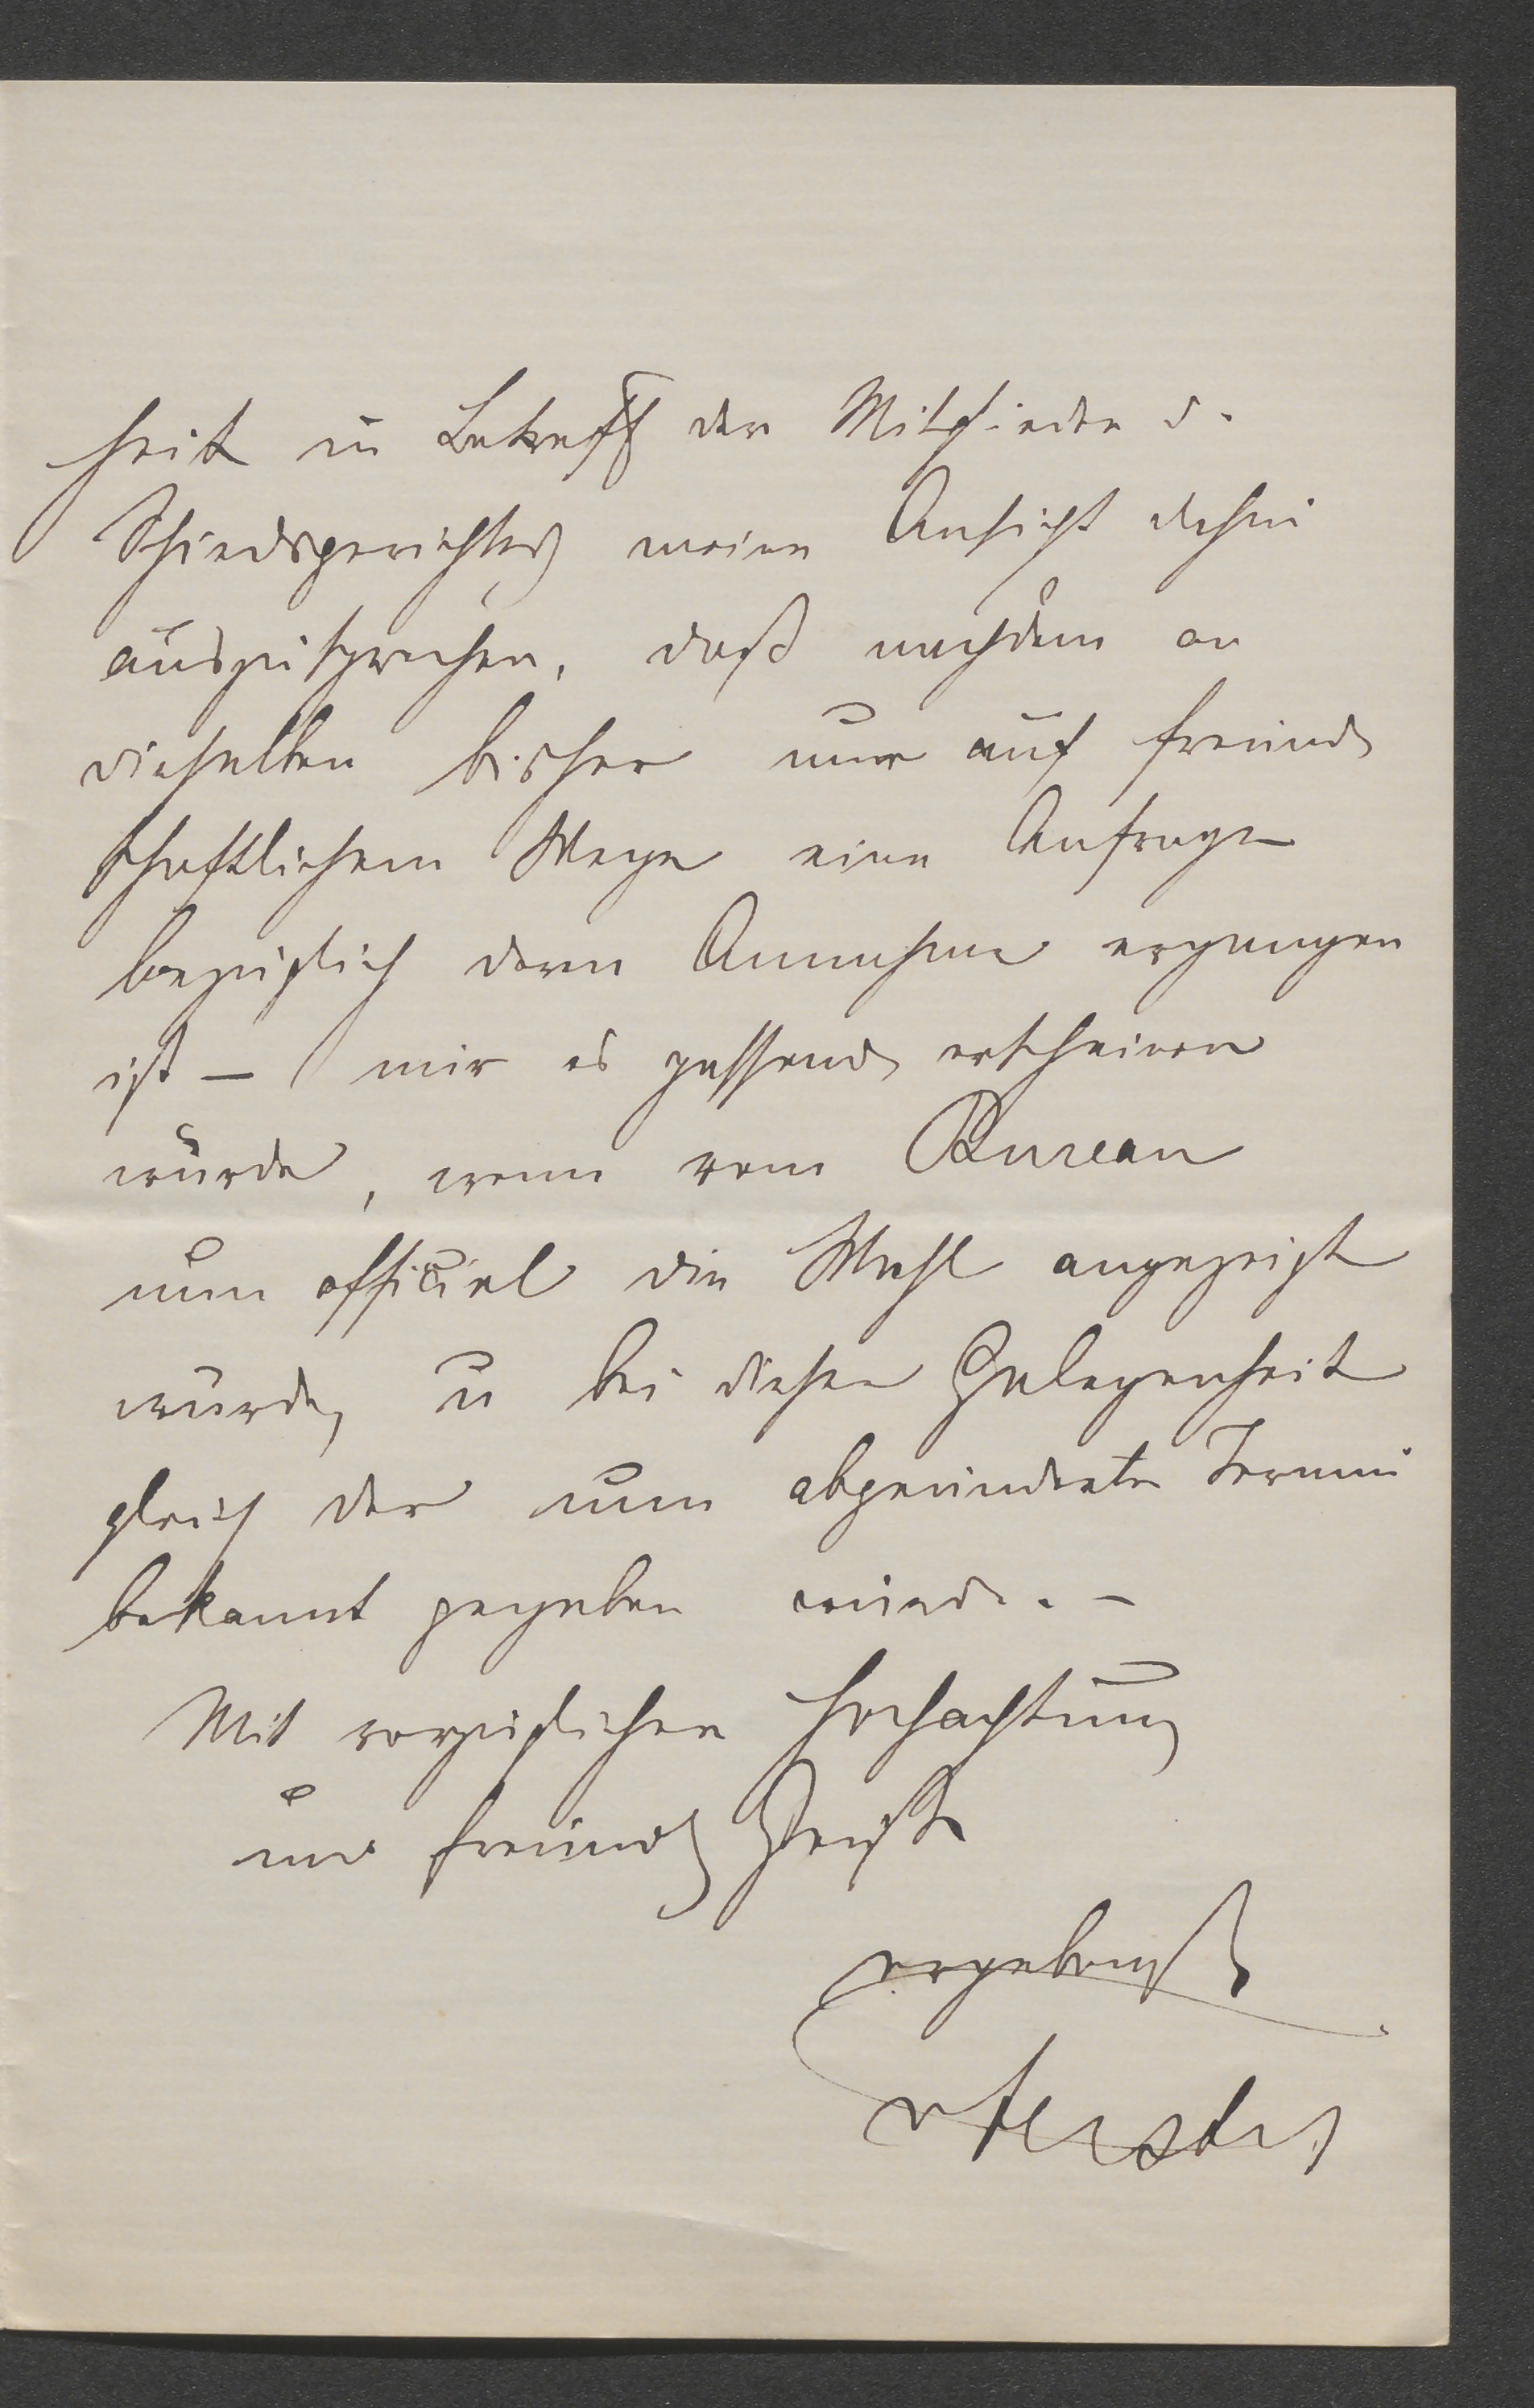 heit in Betreff der Mitglieder d.
Schiedsgerichtes meine Ansicht dahin
auszusprechen, daß nachdem an
dieselben bisher nur auf freund
schaftlichem Wege eine Anfrage
bezüglich deren Annahme ergangen
ist – mir es passend erscheinen
würde, wenn vom Bureau
nun officiel die Wahl angezeigt
wurde, u bei dieser Gelegenheit
gleich der nun abgeänderte Termin
bekannt gegeben würde. –
Mit vorzüglicher Hochachtung
und freundl Gruß
ergebenst